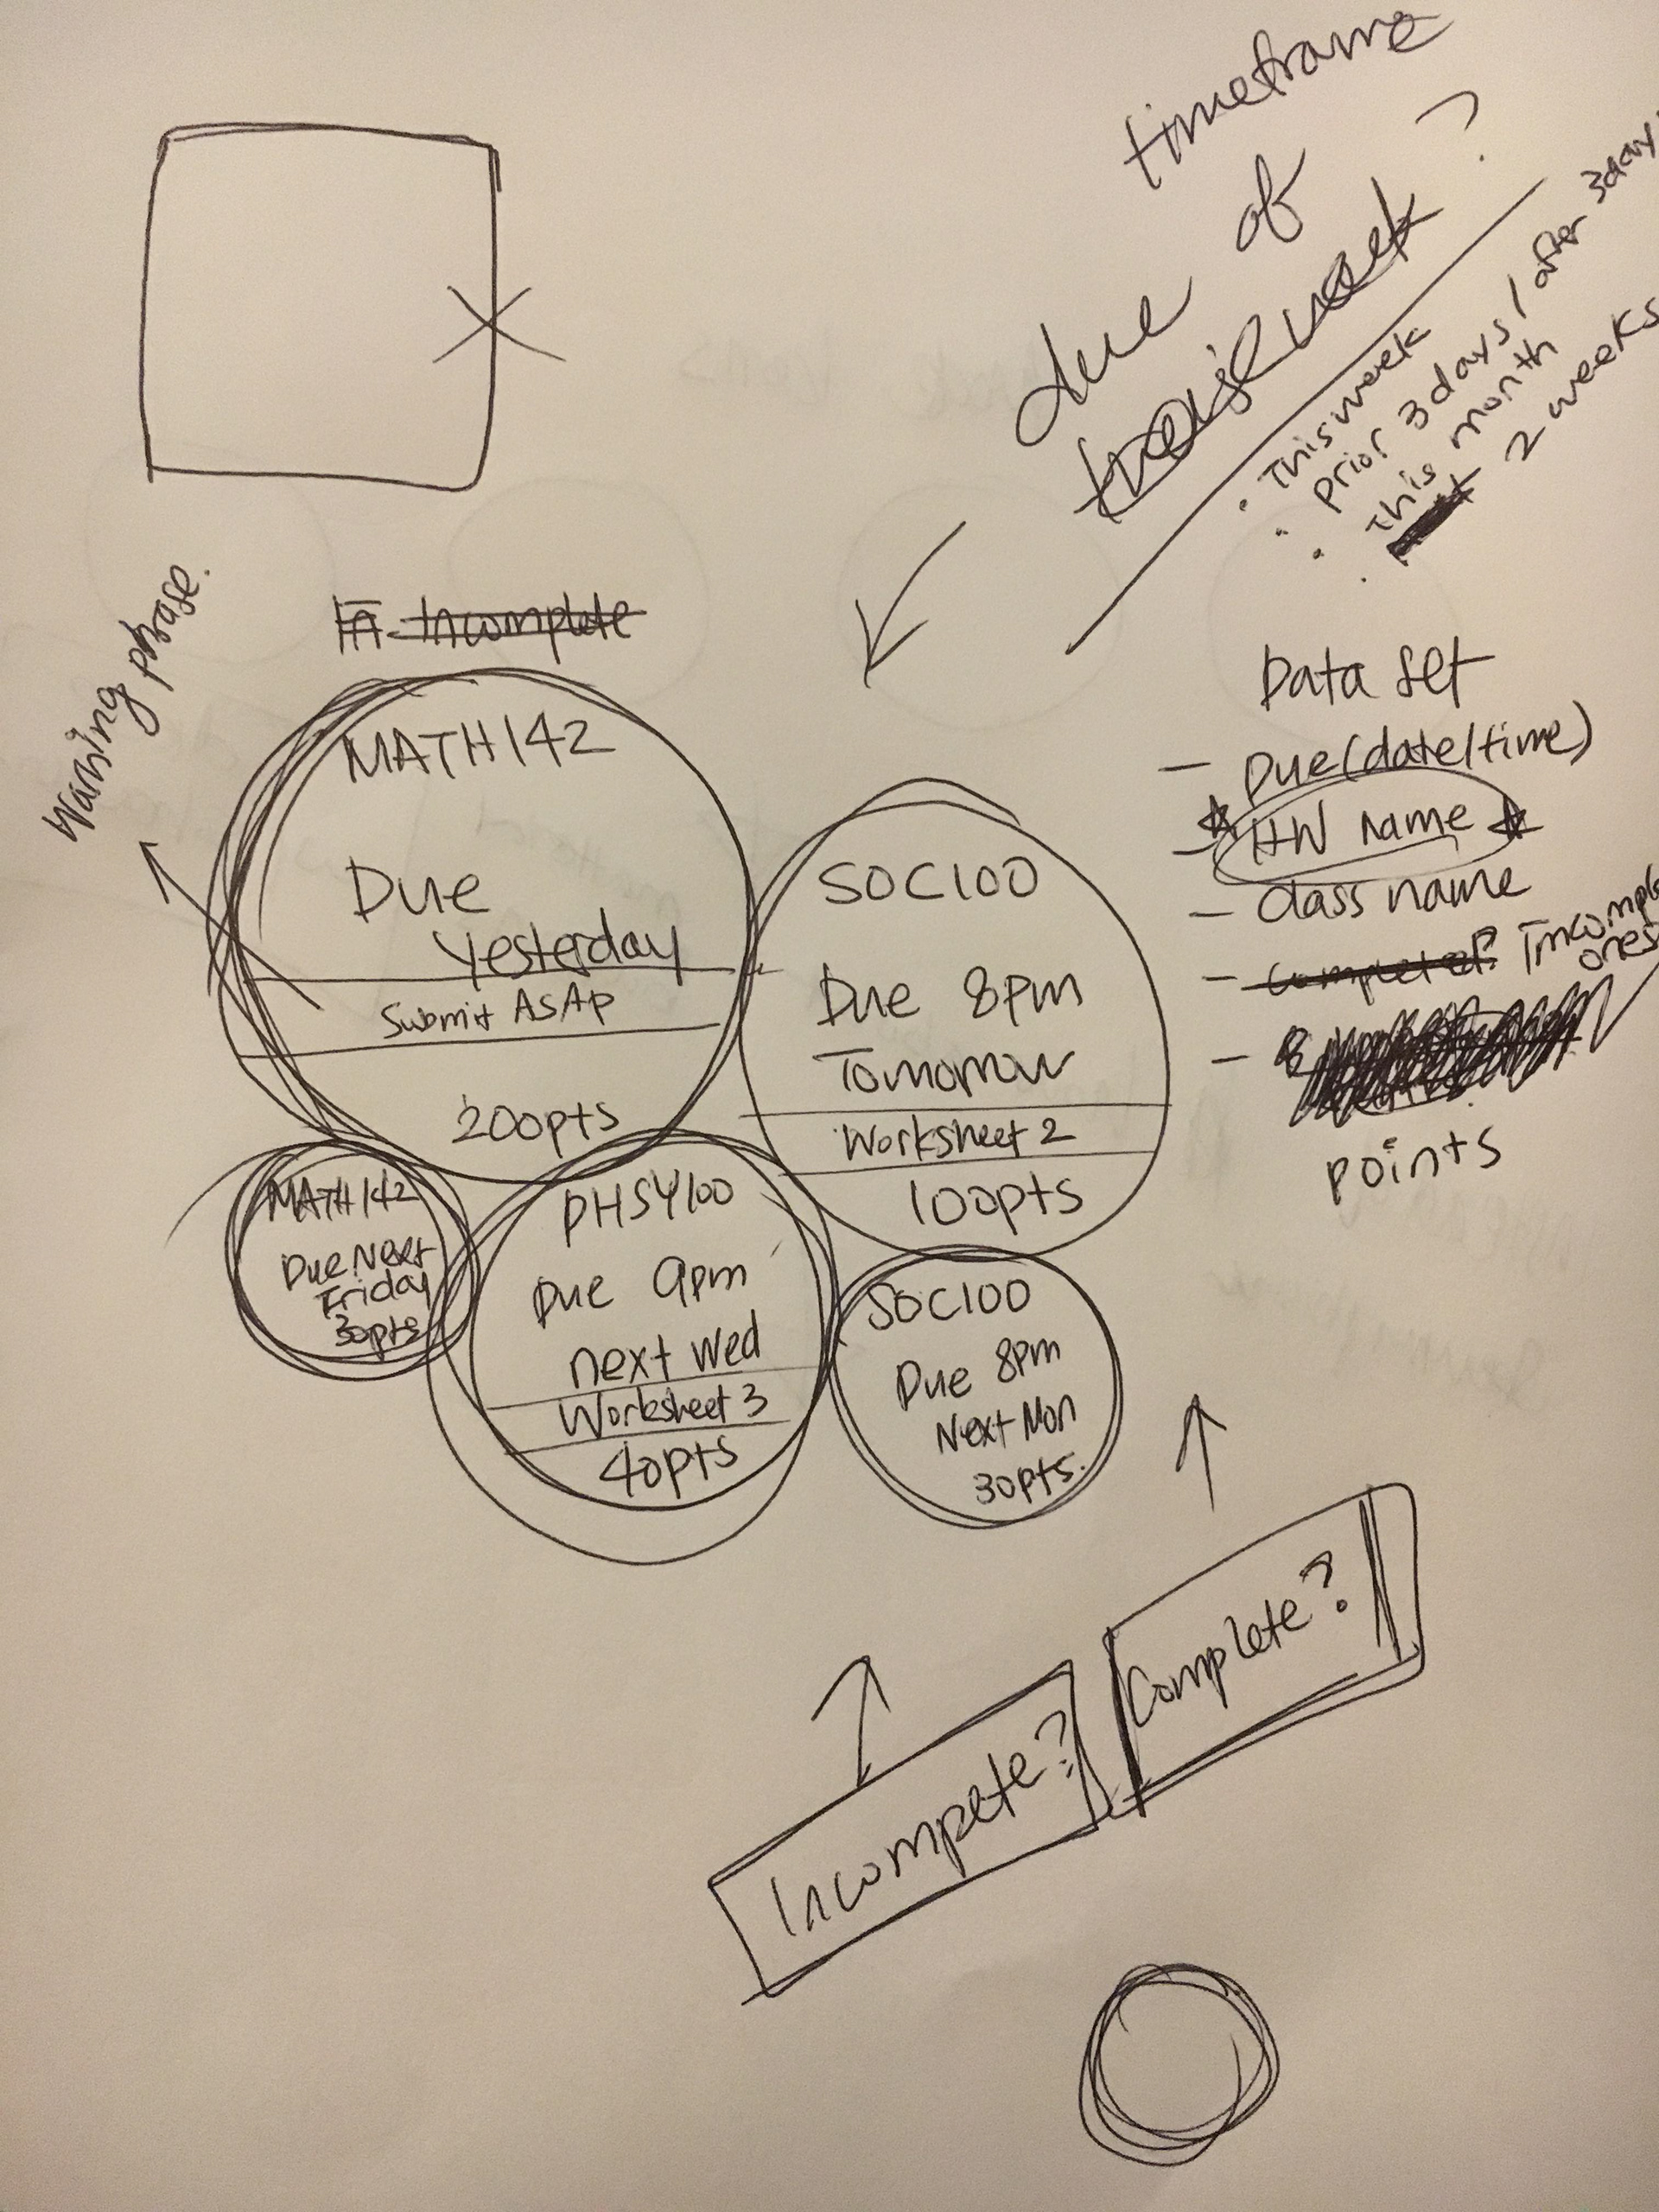 timeframe
of
due
?
this week
· This week
· prior 3days / after 3day
· This month
· 2 weeks
Warning phrase.
In Incomplete
MATH142
Due
Yesterday
Submit ASAP
200pts
SOC100
Due 8pm
Tomorrow
Worksheet 2
100pts
MATH142
Due Next
Friday
30pts
PHSY100
Due 9pm
next Wed
Worksheet 3
40pts
SOC100
Due 8pm
Next Mon
30pts.
Data set
- Due (date/time)
- HW name
- Class name
- completed?
ones
-
points
Incompete?
Complete?